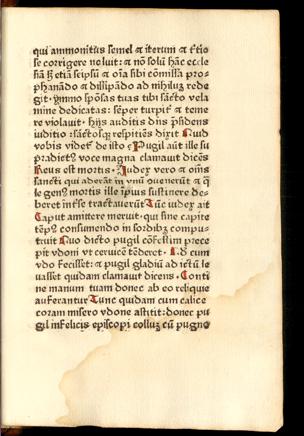 qui ammonitus semel ⁊ iterum ⁊ t͛tio
se corrigere noluit: ⁊ nō soluȝ hāc eccle
siā sȝ etiā seipsū ⁊ oīa sibi cōmissa pro-
phanādo ⁊ dissipādo ad nihiluȝ rede
git · ymmo spōsas tuas tibi sācto vela
mine dedicatas: semper turpit͛ ⁊ teme
re violauit · hijs auditis dn̄s p̄sidens
iuditio : sāctosqȝ respitiēs dixit Quid
vobis videt͛ de isto Pugil aūt ille su
pradictꝰ voce magna clamauit dicēs
Reus est mortis · Iudex vero ⁊ oīns
sancti qui aderāt in vnū
le genꝰ mortis ille īpius sustinere de-
beret īter se tractauerūt Tūc iudex ait
Caput amittere meruit · qui sine capite
tēpꝰ consumendo in sordibȝ compu-
truit Quo dicto pugil cōfestim prece
pit vdoni vt ceruicē tēderet · Id cum
vdo fecisset: ⁊ pugil gladiū ad ictū le
uasset quidam clamauit dicens · Conti
ne manum tuam donec ab eo reliquie
auferantur Tunc quidam cum calice
coram misero vdone astitit: donec pu
gil infelicis episcopi collūȝ cū pugno